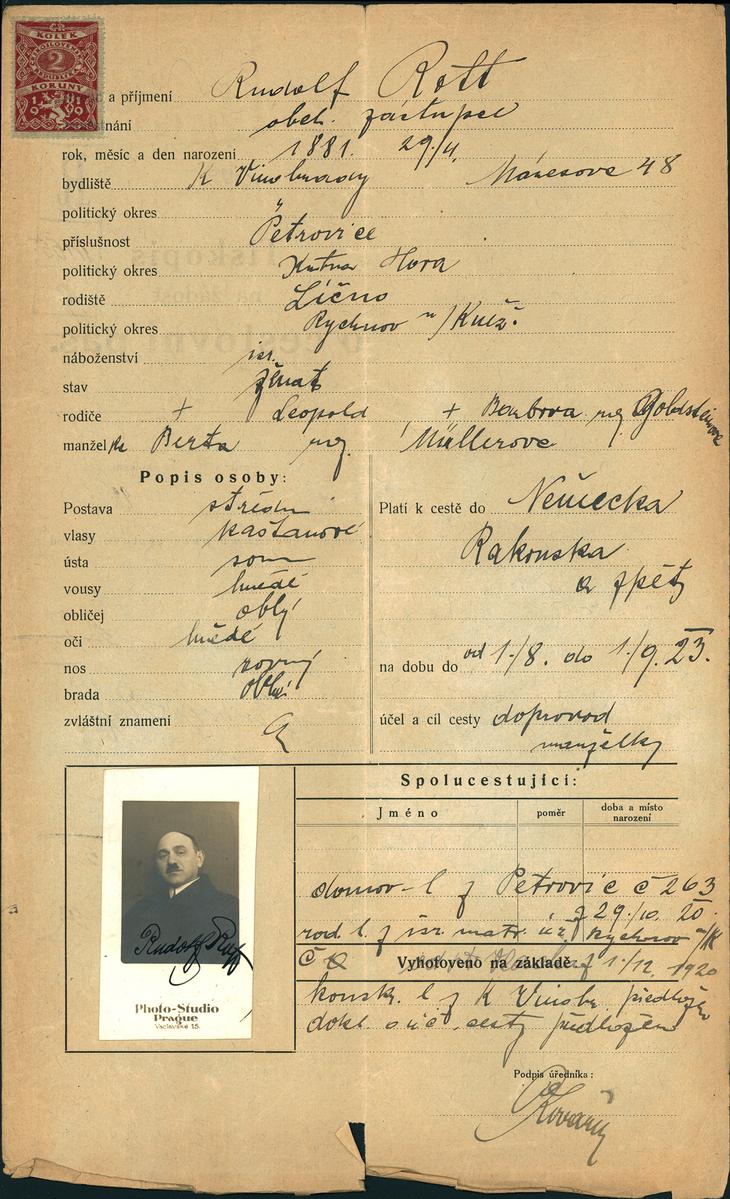 KOLEK
2
KORUNY
1919
a příjmení Rudolf Rott
obch. zástupce
rok, měsíc a den narození 1881. 29/4.
bydliště K Vinohrady Mánesova 48
politický okres "
příslušnost Petrovice
politický okres Kutna Hora
rodiště Líčno
politický okres Rychnov n/Kněž.
náboženství isr.
stav ženat
rodiče + Leopold + Barbora roz. Goldsteinova
manželka Berta roz. Müllerova
Popis osoby:
Postava střední
vlasy kaštanové
ústa
vousy hnědé
obličej oblý
oči hnědé
nos rovný
brada oblá
zvláštní znamení
Platí k cestě do Německa
Rakouska
a zpět
na dobu do od 1./8. do 1./9. 23.
účel a cíl cesty doprovod
manželky
Spolucestující:
Jméno poměr doba a místo narození
domov. l z Petrovic č 263
z 29./10. 20.
rod. l. z isr. matr. úř. Rychnov n/K
č
Vyhotoveno na základě
z 1./12. 1920
konskr. l z K Vinohr předložen
dokl. o úč. cesty předložen
Rudolf Rott
Photo-Studio
Prague
Václavské 15.
Podpis úředníka: